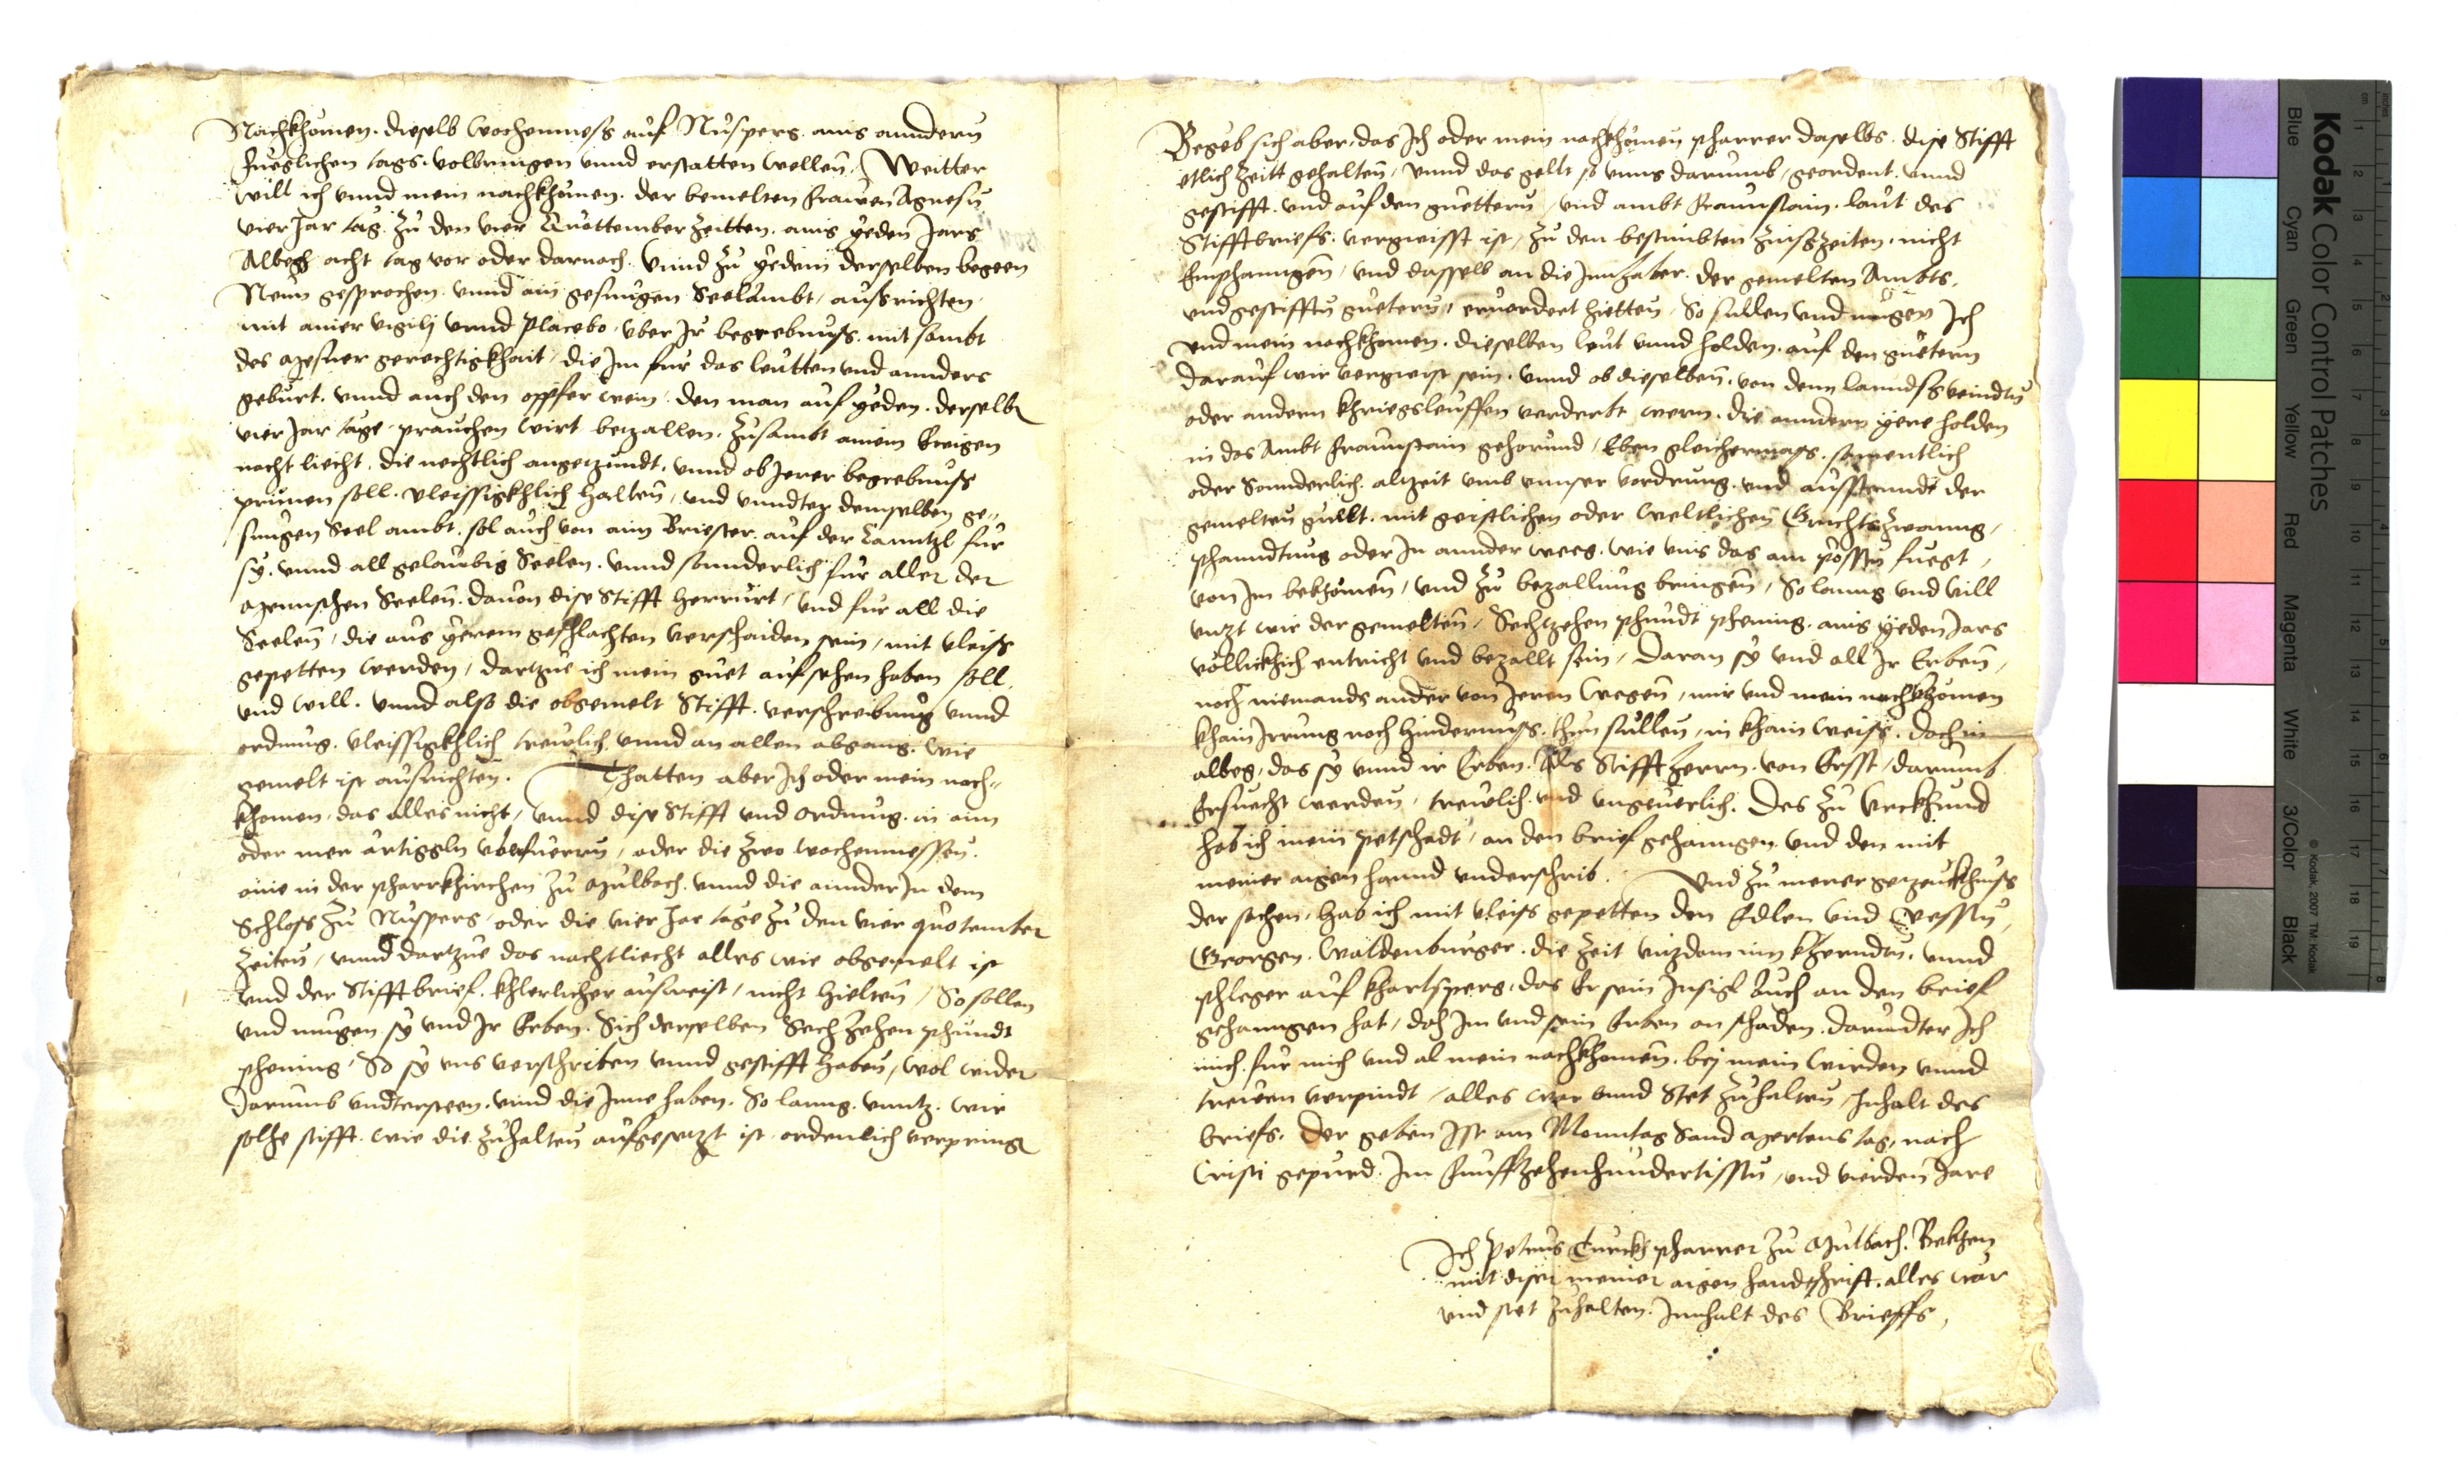 Nachkhomen. dieselb wochenmess auf Nusperg. ains anndern
fueglichen tags. volbringen vnnd erstatten wellen. Weitter
will ich vnnd mein nachkhomen. der bemelten frawen Agnesn
vier Jar tag. zu den vier Quottember zeitten. ains yeden Jars
Albeg acht tag vor oder darnach. vnnd zu yedem derselben begeen
Neun gesprochen. vnnd ain gesungen Seelambt, ausrichten
mit ainer vigilj vnnd placebo. vber Jr begrebnuss. mit sambt
des mesner gerechtigkhait, die Jm fur das leutten vnd annders
geburt. vnnd auch den oppfer wein. den man auf yeden. derselben
vier Jar tage prauchen wirt betzallen. zusambt ainem Ewigen
nacht liecht. die nechtlich angetzundt. vnnd ob Jerer begrebnuss
prinnen soll. vleissigkhlich halten, vnd vnndter demselben ge-
sungen Seel ambt. sol auch von aim Briester. auf der Canntzl fur
sy. vnnd all gelaubig Seelen. vnnd sonnderlich fur aller der
menschen Seelen. dauon dise Stifft herrurt, vnd fur all die
Seelen, die aus yerem geschlachten verschaiden sein, mit vleiss
gepetten werden, dartzue ich mein guet aufsehen haben soll.
vnd will. vnnd also die obgemelt Stifft. verschreibung vnnd
ordnung. vleissigkhlich trewlich vnnd an allen abgang. wie
gemelt ist ausrichten. Thatten aber Jch oder mein nach-
khomen. das alles nicht, vnnd dise Stifft vnd ordnung. in aim
oder mer artiggln vberfuerrn, oder die zwo wochenmessen.
aine in der pharrkhirchen zu Mulbach. vnnd die annder Jn dem
Schloss zu Nusperg, oder die vier Jar tage zu den vier quotember
zeiten, vnnd dartzue das nachtliecht alles wie obgemelt ist
vnd der Stifftbrief. khlerlicher ausweist, nicht hielten, So sollen
vnd mugen sy vnd Jr Erben. Sich derselben Sechzehen phundt
phening. So sy vns verschriben vnnd gestifft haben, wol wider
darumb vndtersteen. vnnd die Jnne haben. So lanng. vnntz. wir
solhe stifft. wie die zuhalten aufgesetzt ist. ordenlich verpringen
Begeb sich aber. das Jch oder mein nachkhomen pharrer daselbs. dise Stifft
etlich zeitt gehalten, vnnd das gellt so vnns darumb, geordent. vnnd
gestifft. vnd auf den guettern, vnd ambt Fraunstain. laut des
Stifftbriefs. vergwisst ist, zu den bestimbten zinsszeiten. nicht
Emphanngen, vnd dasselb an die Jnnhaber. der gemelten Ambts.
vnd gestifften guetern, eruordert hietten, So sullen vnd mugen Jch
vnd mein nachkhomen. dieselben leut vnnd holden. auf den guetern
darauf wir vergwist sein. vnnd ob dieselben. von denn lanndsveindtn
oder andern khriegsleuffen verderbt wern. die anndern yere holden
in das Ambt Fraunstain gehorund, Eben gleichermass. samentlich
oder Sonnderlich. altzeit vmb vnnser vordrung. vnd ausstenndt der
gemelten gullt. mit geistlichen oder weltlichen Grichtszwanng,
phanndtung oder Jn annder weeg. wie vns das am possten fuegt,
von Jm bekhomen, vnd zu bezallung bringen, So lanng vnd vill
vnzt wir der gemelten, Sechtzehen phundt phening. ains yeden Jars
vollickhlich entricht vnd bezallt sein, Daran sy vnd all Jr Erben,
noch niemands ander von Jeren wegen, mir vnd mein nachkhomen
khain Jrrung noch hindernuss. thun sullen, in khain weiss. doch in
albeg, das sy vnnd ir Erben. Als Stifftherrn. von Ersst, darumb
Ersuecht werden, trewlich vnd vngeuerlich. Des zu vrckhund
hab ich mein petschadt, an den brief gehanngen. vnd den mit
meiner aigen hannd vnderschrib. Vnd zu merer getzeuckhnuss
der sachen. hab ich mit vleiss gepetten den Edlen vnd Vesstn,
Georgen. Waldenburger. die zeit vitzdom inn khernndtn. vnnd
phleger auf kharlsperg. das Er sein Jnsigl Auch an den brief
gehanngen hat, doch Jm vnd sein Erben an schaden. darundter Jch
mich. fur mich vnd al mein nachkhomen. bej mein wirden vnnd
trewen verpindt, alles war vnnd Stet zuhalten, Jnhalt des
briefs. Der geben Jst am Monntag Sand Mertens tag, nach
Cristi gepurd. Jm Funffzehenhundertissten, vnd vierden Jare
Jch Petrus Turckh pharrer zu Mulbach. Bekhen
mit diser meiner aigen handtschrift. alles war
vnd stet zuhalten. Jnnhalt des Brieffs,
Kodak Color Control Patches
Blue Cyan Green Yellow Red Magenta White 3/Color Black
© Kodak, 2007 TM: Kodak